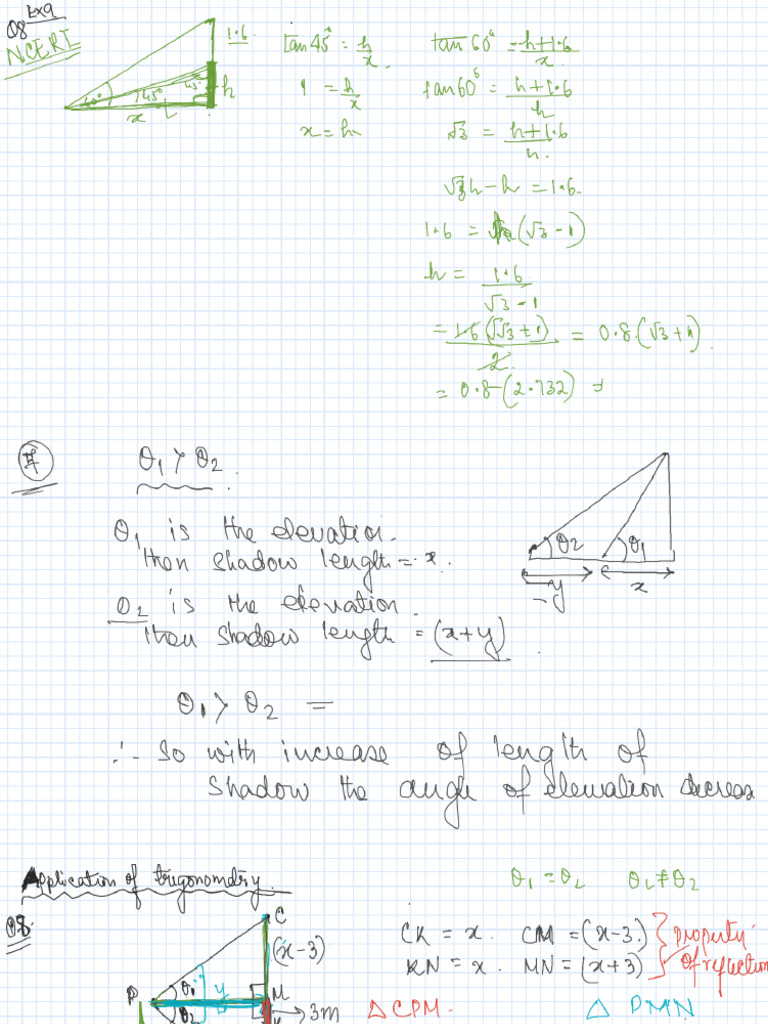 Q8 Ex9
NCERT
1.6
60° 45° 45° h
x
tan45° = h/x
1 = h/x
x = h
tan 60° = h+1.6/x
tan60° = h+1.6/h
√3 = h+1.6/h
√3h - h = 1.6
1.6 = h(√3-1)
h = 1.6/√3-1
= 1.6(√3+1)/2 = 0.8(√3+1)
= 0.8(2.732)
θ1 > θ2
θ1 is the elevation.
then shadow length = x.
θ2 is the elevation
then shadow length = (x+y)
θ2 θ1
y x
θ1 > θ2 =
∴ so with increase of length of
shadow the angle of elevation decrease
Application of trigonometry
θ1 = θ2 θ1 ≠ θ2
Q8.
C
(x-3)
P θ1 y M
θ2 3m
CK = x. CM = (x-3)
KN = x. MN = (x+3)
Property
of reflection
△CPM.
△ PMN